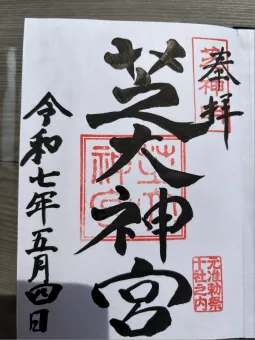 奉拝
芝大神宮
令和七年五月四日
芝大神宮
元准勅祭
十社之内